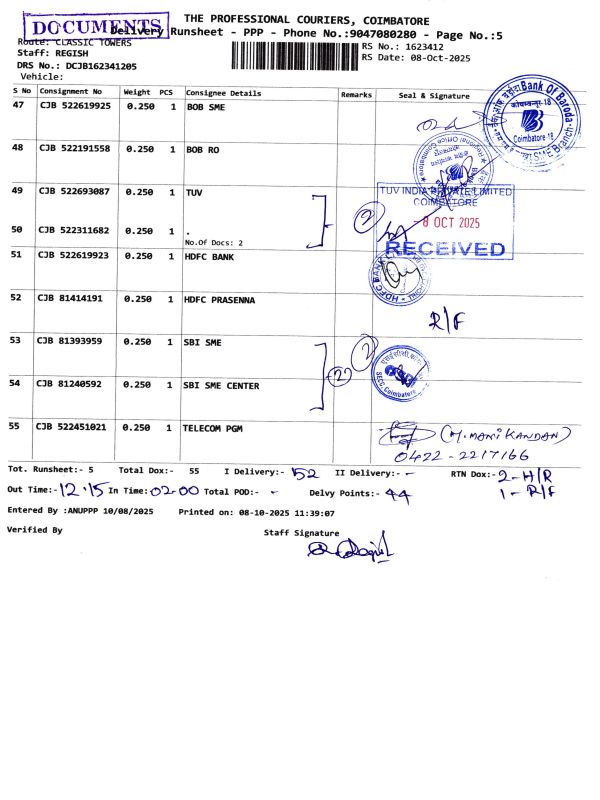 DOCUMENTS
THE PROFESSIONAL COURIERS, COIMBATORE
Delivery Runsheet - PPP - Phone No.:9047080280 - Page No.:5
Route: CLASSIC TOWERS
Staff: REGISH
DRS No.: DCJB162341205
Vehicle:
RS No.: 1623412
RS Date: 08-Oct-2025
S No Consignment No Weight PCS Consignee Details Remarks Seal & Signature
47 CJB 522619925 0.250 1 BOB SME
Bank Of Baroda
Coimbatore-18
SME Branch
48 CJB 522191558 0.250 1 BOB RO
49 CJB 522693087 0.250 1 TUV
2
TUV INDIA PRIVATE LIMITED
COIMBATORE
- 8 OCT 2025
RECEIVED
50 CJB 522311682 0.250 1 .
No.Of Docs: 2
51 CJB 522619923 0.250 1 HDFC BANK
HDFC BANK
52 CJB 81414191 0.250 1 HDFC PRASENNA
R/F
53 CJB 81393959 0.250 1 SBI SME
2
2
54 CJB 81240592 0.250 1 SBI SME CENTER
55 CJB 522451021 0.250 1 TELECOM PGM
(M.MANI KANDAN)
0422-2217166
Tot. Runsheet:- 5 Total Dox:- 55 I Delivery:- 52 II Delivery:- - RTN Dox:- 2-H/R
1-R/F
Out Time:- 12.15 In Time:- 02-00 Total POD:- - Delvy Points:- 44
Entered By :ANUPPP 10/08/2025 Printed on: 08-10-2025 11:39:07
Verified By
Staff Signature